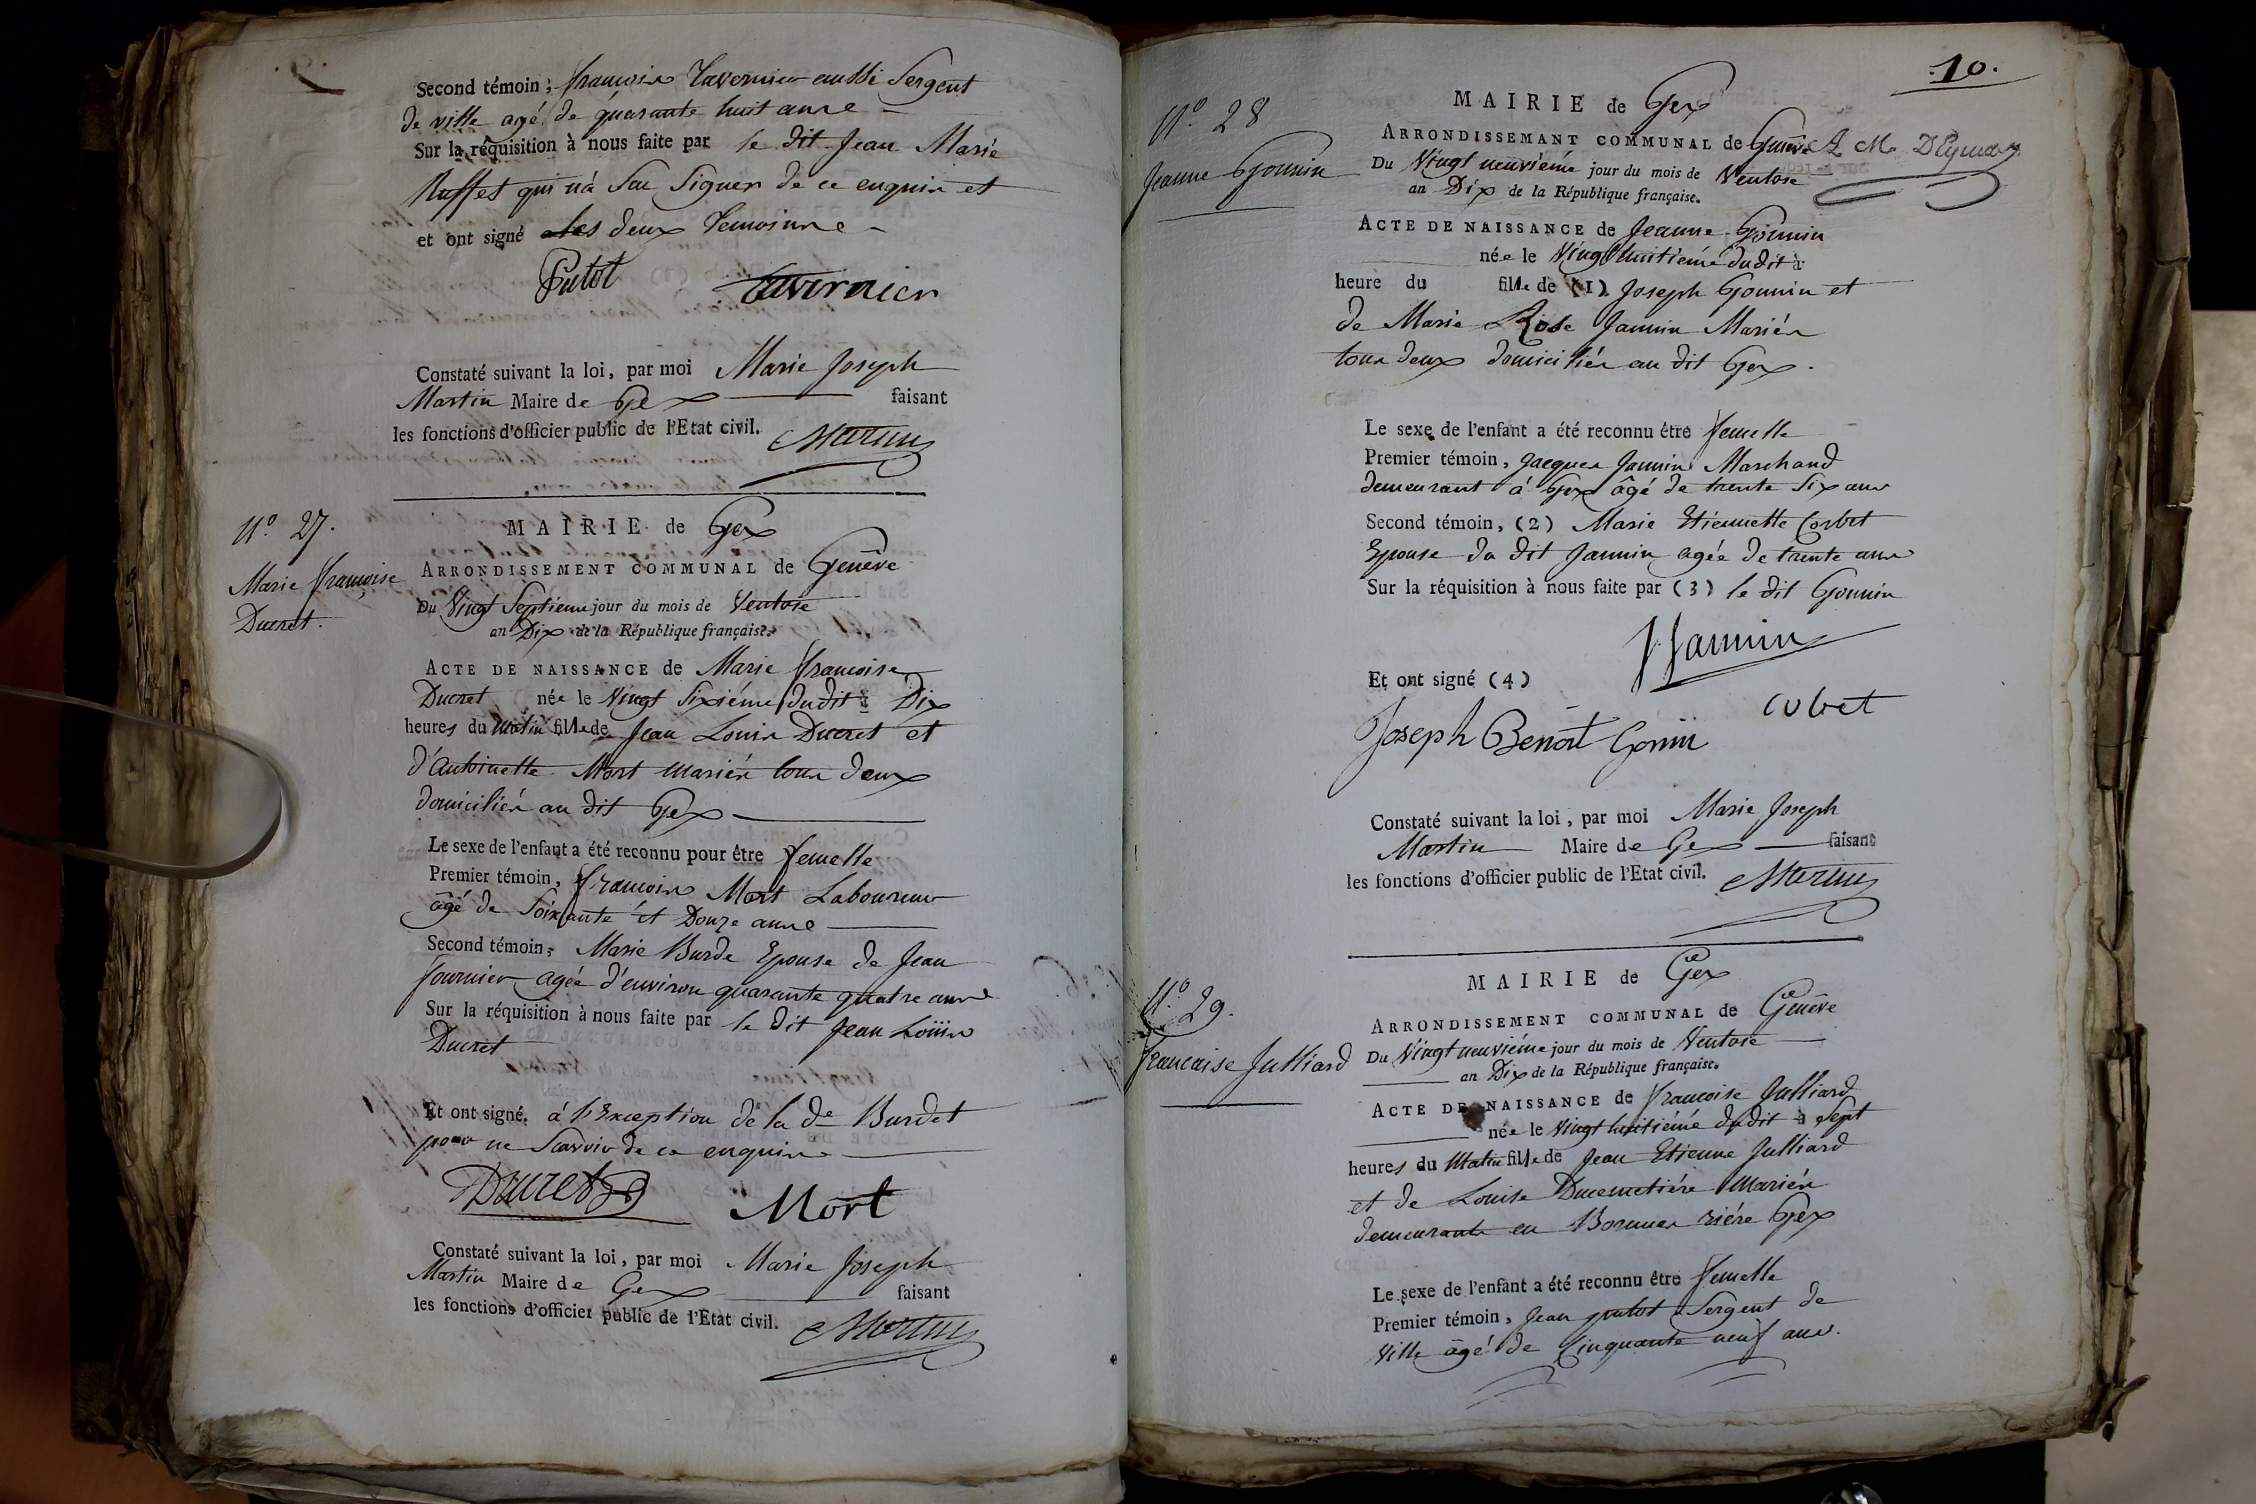 Second témoin, françois Tavernier aussi Sergent
de ville agé de quarante huit ans
Sur la réquisition à nous faite par le dit Jean Marie
Ruffet qui n'a Seu Signer de ce enquis et
et ont signé les deux Temoins
Putot Tavernier
Constaté suivant la loi, par moi Marie Joseph
Martin Maire de Gex faisant
les fonctions d'officier public de l'Etat civil. Martin
N.o 27.
Marie françoise
Ducret.
MAIRIE de Gex
ARRONDISSEMENT COMMUNAL de Genêve
Du Vingt Septieme jour du mois de Ventose
an Dix de la République française.
ACTE DE NAISSANCE de Marie françoise
Ducret née le Vingt Sixiéme du dit à Dix
heures du Matin fille de Jean Louis Ducret et
d'Antoinette Mort mariés tous deux
domiciliés au dit Gex
Le sexe de l'enfant a été reconnu pour être femelle
Premier témoin, françois Mort Laboureur
âgé de Soixante et Douze ans
Second témoin, Marie Burde Epouse de Jean
fournier agée d'environ quarante quatre ans
Sur la réquisition à nous faite par le dit Jean Loüis
Ducret
Et ont signé. á l'Exception de la de Burdet
pour ne Scavoir de ce enquis
Ducret Mort
Constaté suivant la loi, par moi Marie Joseph
Martin Maire de Gex faisant
les fonctions d'officier public de l'Etat civil. Martin
.10.
N.o 28
Jeanne Gonnin
MAIRIE de Gex
ARRONDISSEMANT COMMUNAL de Genêve
Du Vingt neuviéme jour du mois de Ventose
an Dix de la République française.
ACTE DE NAISSANCE de Jeanne Gonnin
née le Vingt huitiéme du dit à
heure du fille de (1) Joseph Gonnin et
de Marie Rose Jannin Mariés
tous deux domiciliés au dit Gex.
Le sexe de l'enfant a été reconnu être femelle
Premier témoin, Jacques Jannin Marchand
demeurant á Gex âgé de trente Six ans
Second témoin, (2) Marie Etiennette Corbet
Epouse du dit Jannin agée de trente ans
Sur la réquisition à nous faite par (3) le dit Gonnin
Jannin
Et ont signé (4)
Corbet
Joseph Benoît Gonin
Constaté suivant la loi, par moi Marie Joseph
Martin Maire de Gex faisant
les fonctions d'officier public de l'Etat civil. Martin
N.o 29.
francoise Julliard
MAIRIE de Gex
ARRONDISSEMENT COMMUNAL de Genêve
Du Vingt neuviéme jour du mois de Ventose
an Dix de la République française.
ACTE DE NAISSANCE de francoise Julliard
née le Vingt huitiéme du dit à Sept
heures du Matin fille de Jean Etienne Julliard
et de Louise Ducemetiére Mariés
demeurants en riére Gex
Le sexe de l'enfant a été reconnu être femelle
Premier témoin, Jean putot Sergent de
Ville âgé de Cinquante neuf ans.